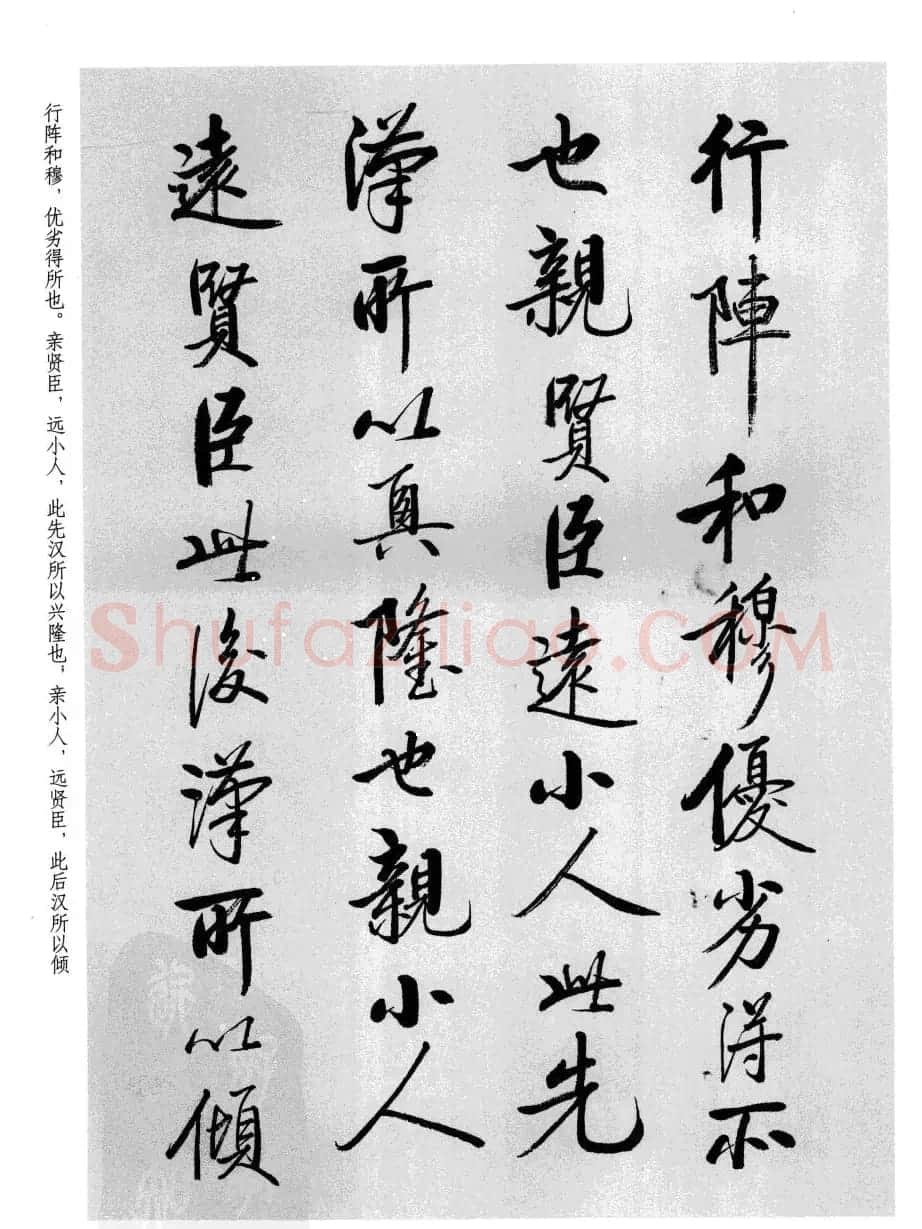 行陣和穆優劣得所
也親賢臣遠小人此先
漢所以興隆也親小人
遠賢臣此後漢所以傾
行阵和穆，优劣得所也。亲贤臣，远小人，此先汉所以兴隆也；亲小人，远贤臣，此后汉所以倾
Shufaziliao.COM